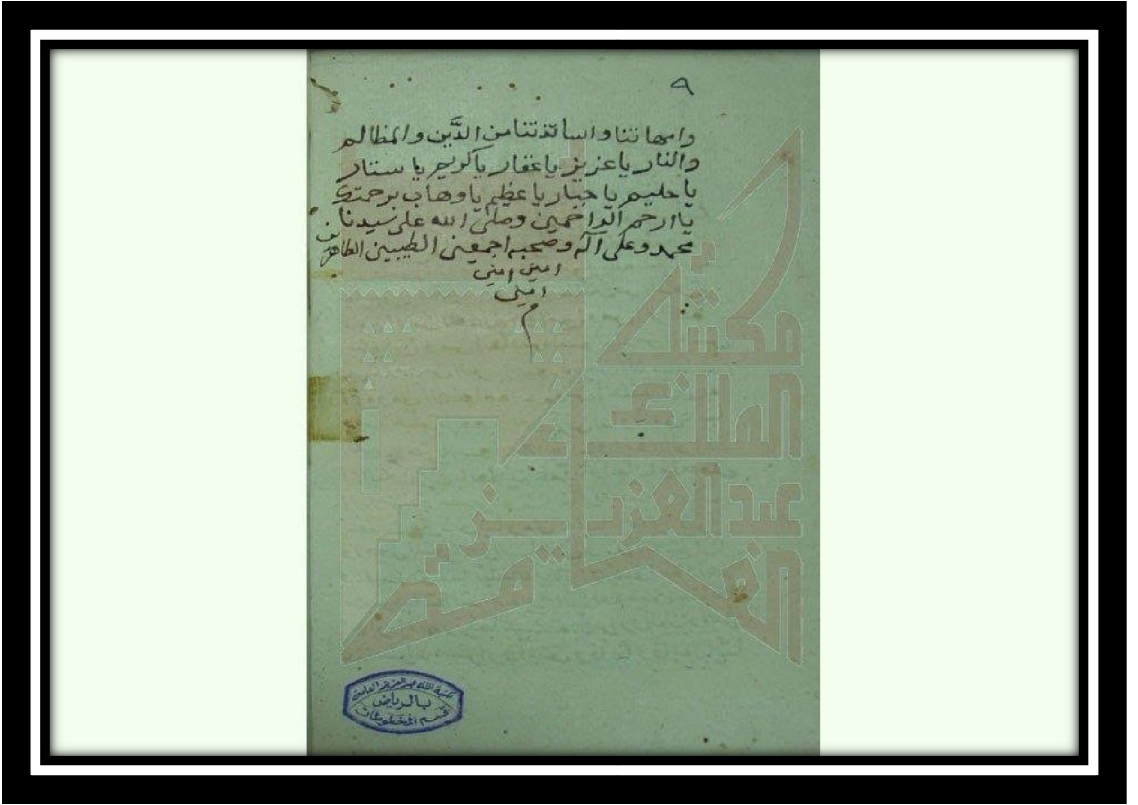 ٩
وامهاتنا واساتذتنا من الدَّين والمظالم
والنار يا عزيز يا غفار يا كريم يا ستار
يا حليم يا جبار يا عظيم يا وهاب برحمتك
يا ارحم الراحمين وصلى الله على سيدنا
محمد وعلى آله وصحبه اجمعين الطيبين الطاهرين
امين امين
امين
م
مكتبة
الملك
عبد العزيز
العامة
مكتبة الملك عبد العزيز العامة
بالرياض
قسم المخطوطات